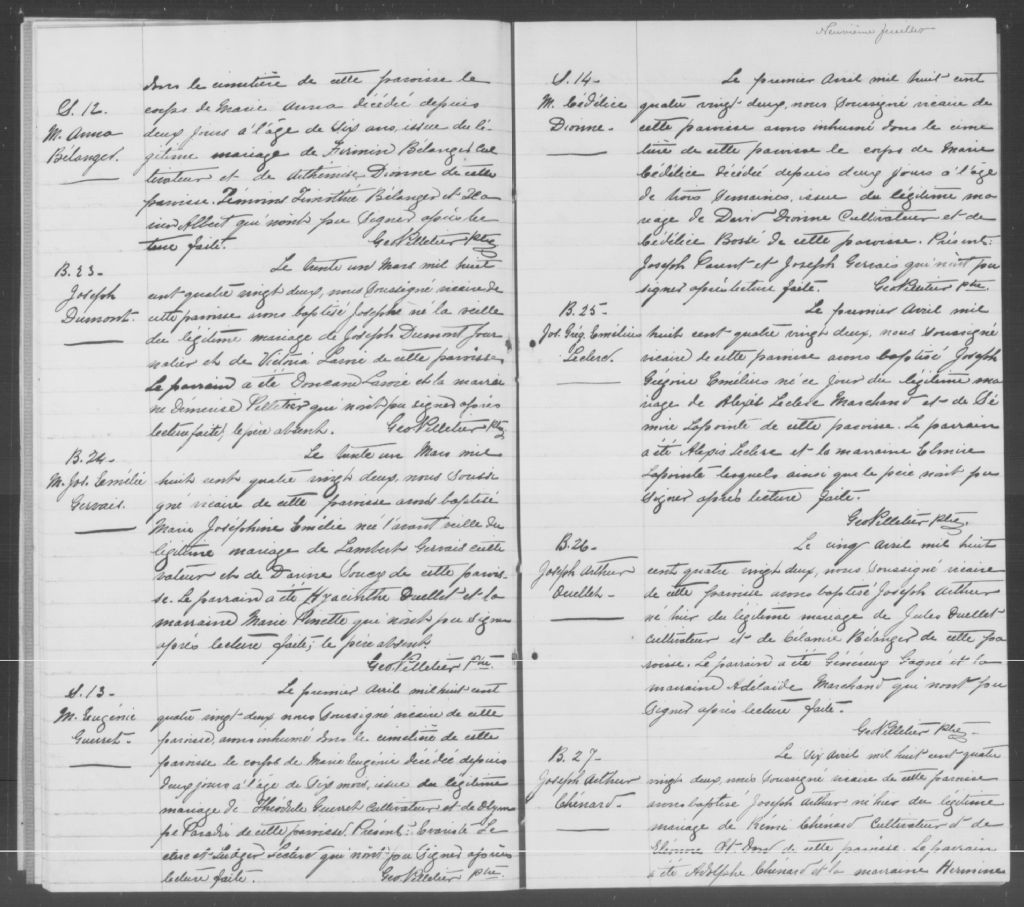 dans le cimetière de cette paroisse le
S. 12. corps de Marie Anna décédée depuis
M. Anna deux jours à l'âge de six ans, issue du lé-
Bélanger. gitime mariage de Firmin Bélanger cul
tivateur et de Arthémise Dionne de cette
paroisse. Témoins Timothé Bélanger et
Albert qui n'ont pu signer après lec
ture faite. Geo Pelletier Ptre
B. 23- Le trente un Mars mil huit
Joseph cent quatre vingt deux, nous soussigné vicaire de
Dumont. cette paroisse avons baptisé Joseph né la veille
du légitime mariage de Joseph Dumont jour
nalier et de Victoria Lavoie de cette paroisse.
Le parrain a été Doncan Lavoie et la marrai
ne Démerise Pelletier qui n'ont pu signer après
lecture faite, le père absent. Geo Pelletier Ptre
B. 24- Le trente un Mars mil
M. Jos. Emélie huit cent quatre vingt deux, nous soussi
Gervais. gné vicaire de cette paroisse avons baptisé
Marie Joséphine Emélie née l'avant veille du
légitime mariage de Lambert Gervais culti
vateur et de Soucy de cette parois-
se. Le parrain a été Hyacinthe Ouellet et la
marraine Marie Pinette qui n'ont pu signer
après lecture faite, le père absent.
Geo Pelletier Ptre.
S. 13- Le premier Avril mil huit cent
M. Eugénie quatre vingt deux nous soussigné vicaire de cette
Guerret. paroisse, avons inhumé dans le cimetière de cette
paroisse le corps de Marie Eugénie décédée depuis
deux jours à l'âge de six mois, issue du légitime
mariage de Théodule Guerret Cultivateur et de Olym
pe Paradis de cette paroisse. Présent: Evariste Le
clerc et Ludger Leclerc qui n'ont pu signer après
lecture faite. Geo Pelletier Ptre
Neuvième feuillet
S. 14- Le premier Avril mil huit cent
M. Cédélice quatre vingt deux, nous soussigné vicaire de
Dionne- cette paroisse avons inhumé dans le cime
tière de cette paroisse le corps de Marie
Cédélice décédée depuis deux jours à l'âge
de trois semaines, issue du légitime ma
riage de David Dionne Cultivateur et de
Cédélice Bossé de cette paroisse. Présent:
Joseph Parent et Joseph Gervais qui n'ont pu
signer après lecture faite. Geo Pelletier Ptre.
B. 25- Le premier Avril mil
Jos. Grég. Emélius huit cent quatre vingt deux, nous soussigné
Leclerc. vicaire de cette paroisse avons baptisé Joseph
Grégoire Emélius né ce jour du légitime ma
riage de Alexis Leclerc Marchand et de Dé
mire Lapointe de cette paroisse. Le parrain
a été Alexis Leclerc et la marraine Elmire
Lapointe lesquels ainsi que le père n'ont pu
signer après lecture faite.
Geo Pelletier Ptre.
B. 26- Le cinq Avril mil huit
Joseph Arthur cent quatre vingt deux, nous soussigné vicaire
Ouellet- de cette paroisse avons baptisé Joseph Arthur
né hier du légitime mariage de Jules Ouellet
Cultivateur et de Célanie Bélanger de cette pa
roisse. Le parrain a été Généreux Gagné et la
marraine Adélaïde Marchand qui n'ont pu
signer après lecture faite.
Geo Pelletier Ptre
B. 27- Le Six Avril mil huit cent quatre
Joseph Arthur vingt deux, nous soussigné vicaire de cette paroisse
Chénard- avons baptisé Joseph Arthur né hier du légitime
mariage de Rémi Chénard Cultivateur et de
de cette paroisse. Le parrain
a été Adolphe Chénard et la marraine Hermine